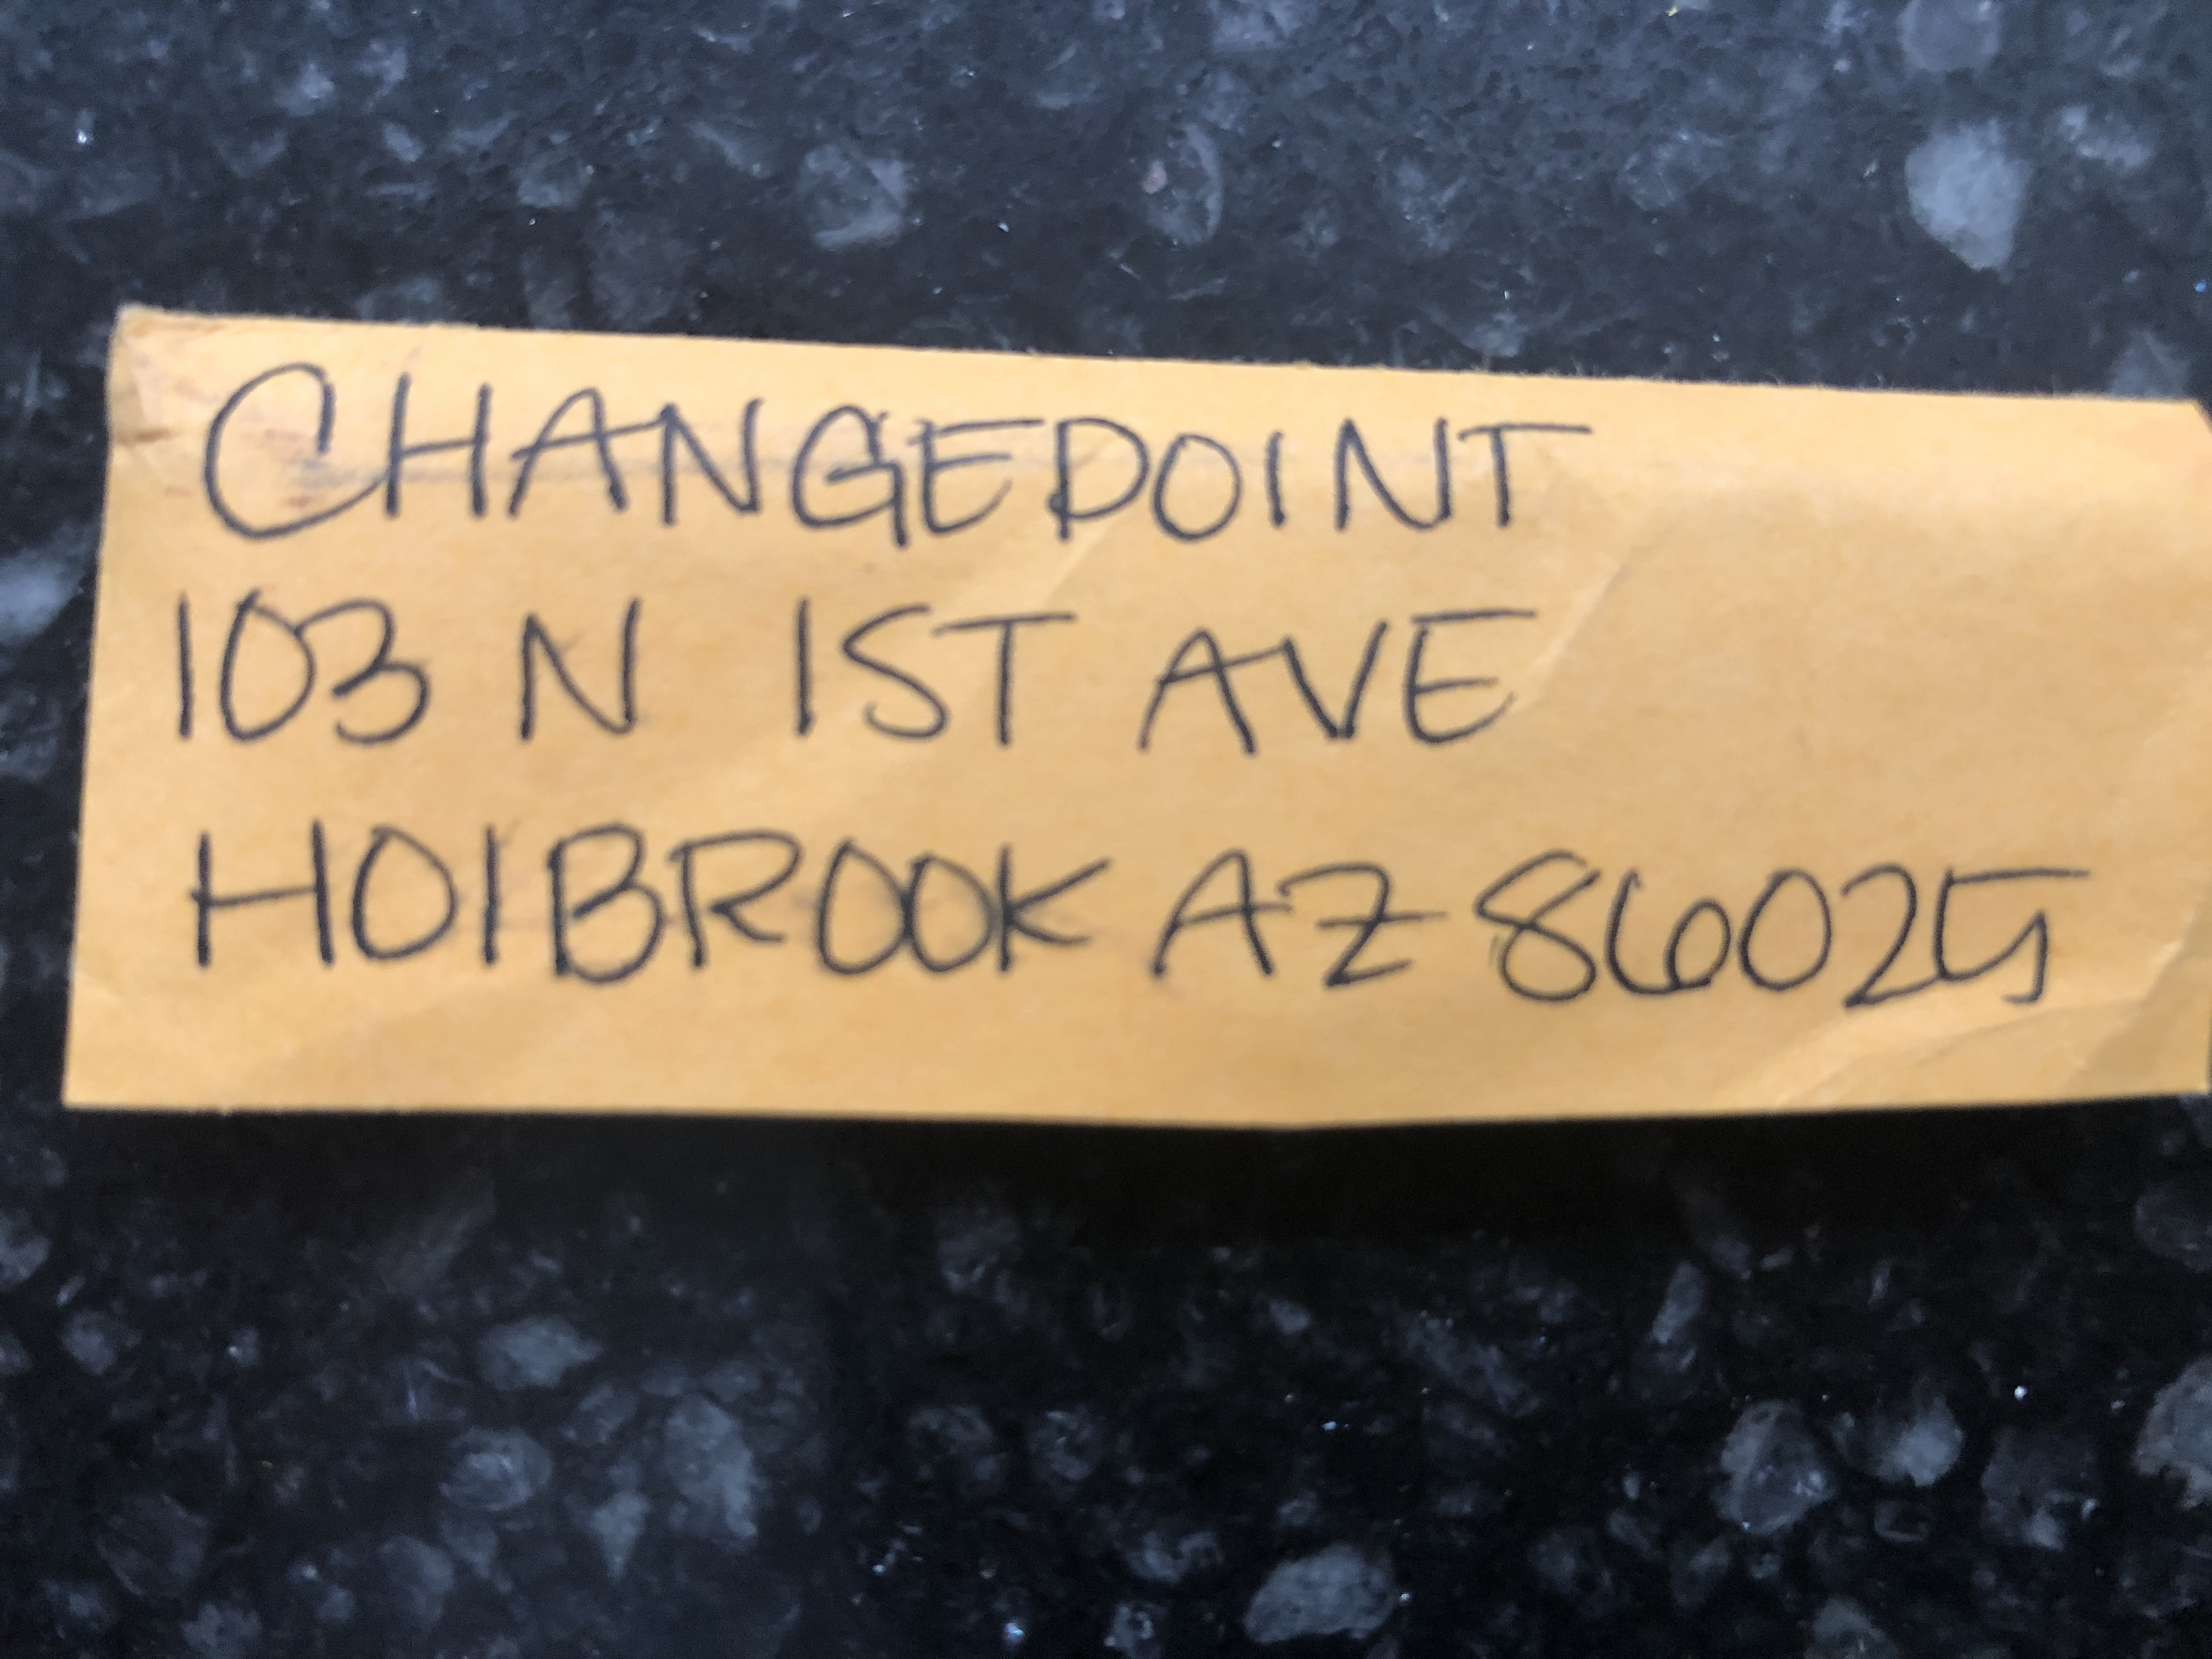 CHANGEPOINT
103 N 1ST AVE
HOlBROOK AZ 86025